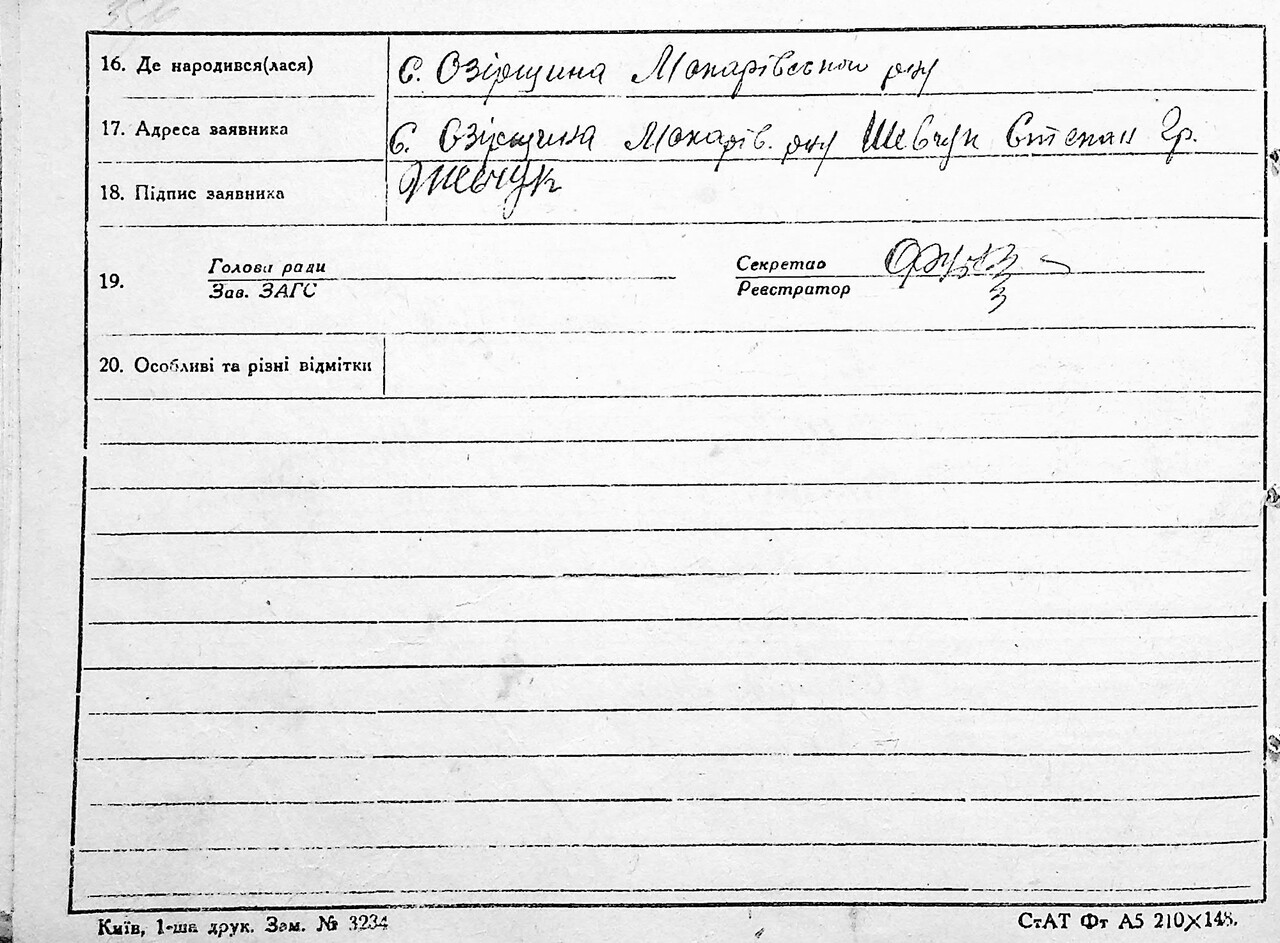 16. Де народився(лася) с. Озірщина Макарівського р-ну
17. Адреса заявника с. Озірщина Макарів. р-ну Шевчук Степан Гр.
18. Підпис заявника Шевчук
Голова ради Секретар
19.
Зав. ЗАГС Реєстратор
20. Особливі та різні відмітки
Київ, 1-ша друк. Зам. № 3234 СтАТ Фт А5 210×148.